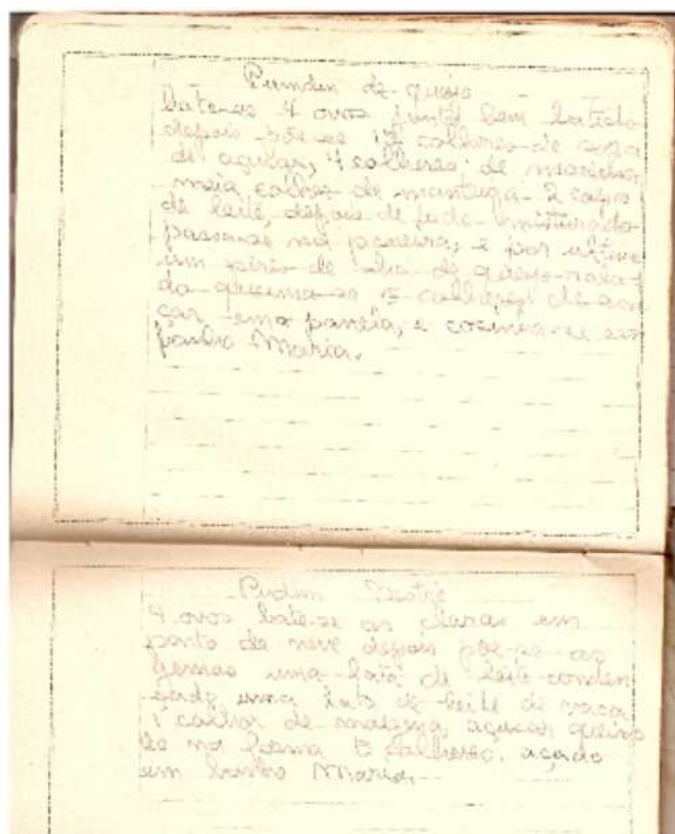 Pumdin de queijo
bate-se 4 ovos juntos bem batido
depois põe-se 12 colheres de sopa
de açucar, 4 colheres, de maizena
meia colher de mantega 2 copos
de leite, depois de tudo misturado
passa-se na peneira, e por ultimo
um pires de de queijo rala-
do queima-se 5 colheres de açu
car na panela, e cozinha-se em
banho Maria.
Pudim Nestlé
4 ovos bate-se as claras em
ponto de neve depois põe-se as
gemas uma lata de leite conden
sado uma lata de leite de vaca
1 colher de maizena, açucar queima
se na forma 5 colheres. açado
em banho Maria.